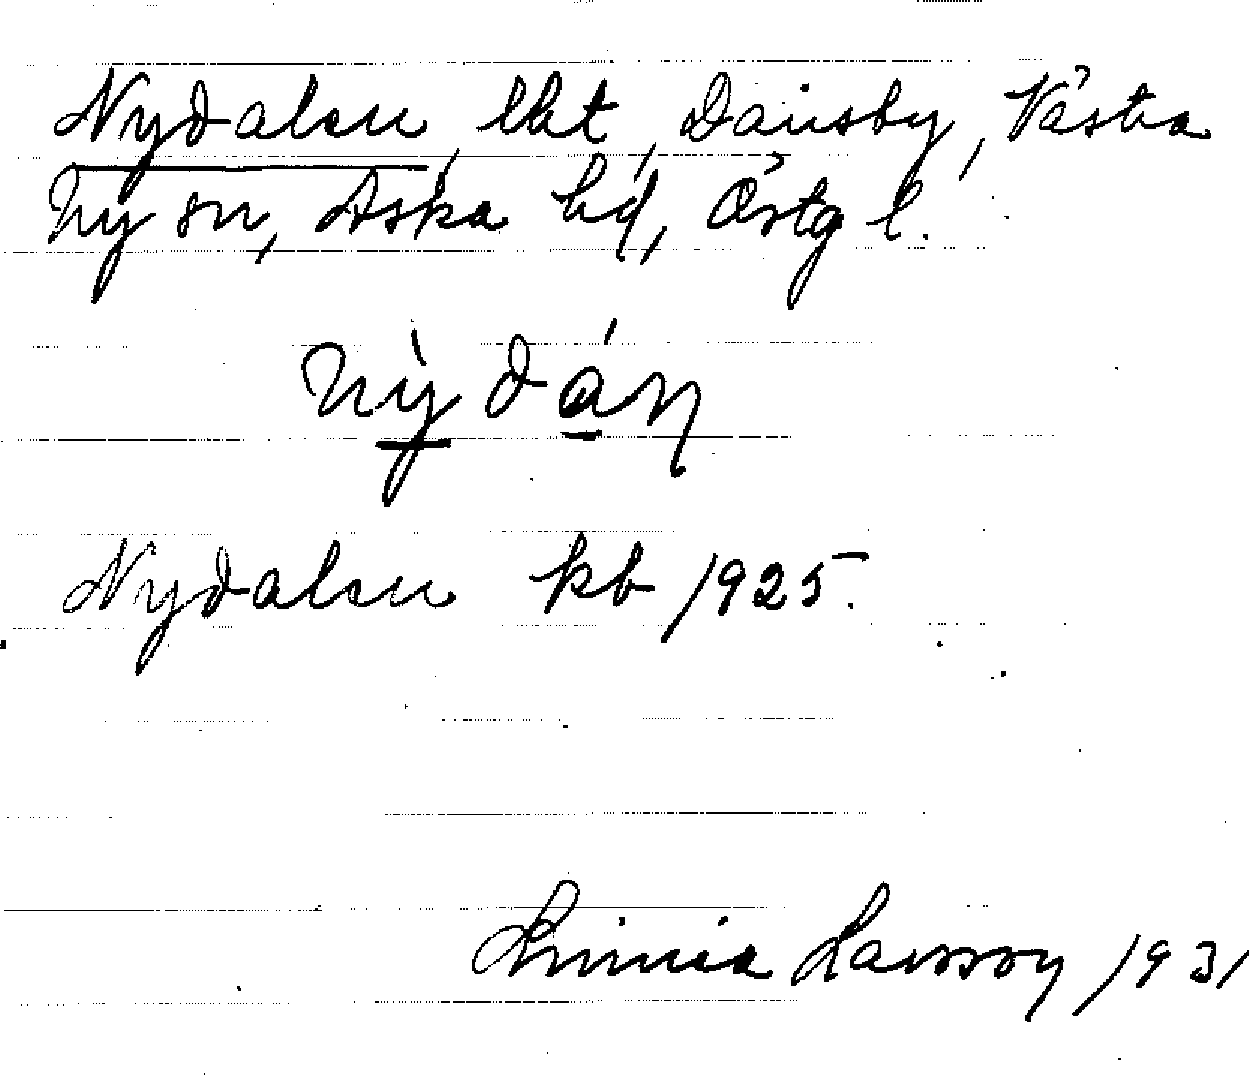 Nydalen, lht, Däisby, Västra
Ny sn, Aska hd, Östg l.
Nỳdáṇ
Nydalen kb 1925.
Linnea Larsson 1931